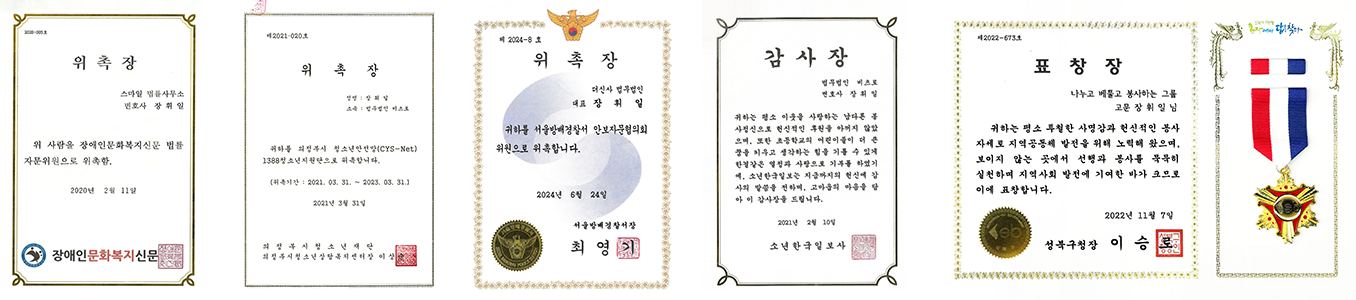 2020-005호
위 촉 장
스마일 법률사무소
변호사 장 휘 일
위 사람을 장애인문화복지신문 법률
자문위원으로 위촉함.
2020년 2월 11일
장애인문화복지신문
제2021-020호
위 촉 장
성명 : 장 휘 일
소속 : 법무법인 비츠로
귀하를 의정부시 청소년안전망(CYS-Net)
1388청소년지원단으로 위촉합니다.
(위촉기간 : 2021. 03. 31. ~ 2023. 03. 31.)
2021년 3월 31일
의 정 부 시 청 소 년 재 단
의정부시청소년상담복지센터장 이상
제 2024-8 호
위 촉 장
더신사 법무법인
대표 장 휘 일
귀하를 서울방배경찰서 안보자문협의회
위원으로 위촉합니다.
2024년 6월 24일
서울방배경찰서장
최 영 기
감 사 장
법무법인 비츠로
변호사 장 휘 일
귀하는 평소 이웃을 사랑하는 남다른 봉
사정신으로 헌신적인 후원을 아끼지 않았
으며, 또한 초등학교의 어린이들이 더 큰
꿈을 키우고 생각하는 힘을 기를 수 있게
한결같은 열정과 사랑으로 기부를 하였기
에, 소년한국일보는 지금까지의 헌신에 감
사의 말씀을 전하며, 고마움의 마음을 담
아 이 감사장을 드립니다.
2021년 2월 10일
소년한국일보사
제2022-673호
표 창 장
나누고 베풀고 봉사하는 그룹
고문 장 휘 일 님
귀하는 평소 투철한 사명감과 헌신적인 봉사
자세로 지역공동체 발전을 위해 노력해 왔으며,
보이지 않는 곳에서 선행과 봉사를 묵묵히
실천하며 지역사회 발전에 기여한 바가 크므로
이에 표창합니다.
2022년 11월 7일
성북구청장 이 승 로